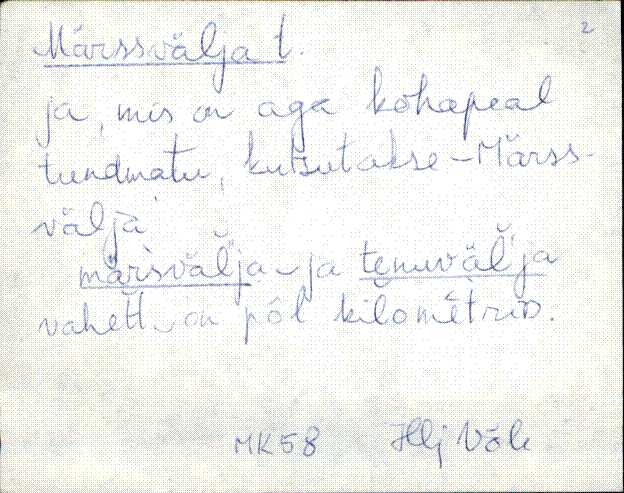 2
Märssvälja t.
ja, mis on aga kohapeal
tundmatu, kutsutakse - Märss-
välja
märsvälja ja tenuvälja
vahett on pól kilomètrit.
MK58 Hlj Väli